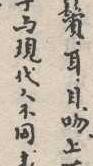 鬢、耳、目、吻、上
与現代人不同、